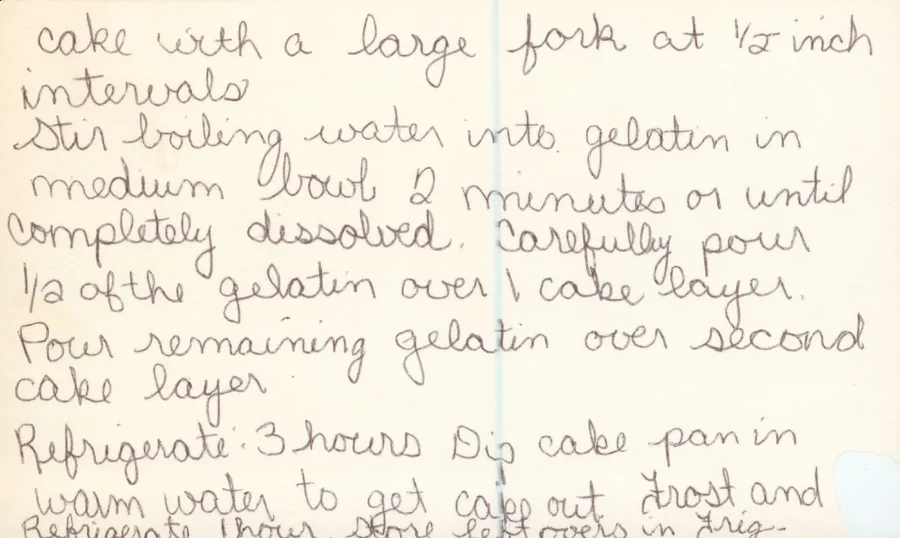 cake with a large fork at 1/2 inch
intervals
Stir boiling water into gelatin in
medium bowl 2 minutes or until
completely dissolved. Carefully pour
1/2 of the gelatin over 1 cake layer.
Pour remaining gelatin over second
cake layer
Refrigerate 3 hours Dip cake pan in
warm water to get cake out Frost and
Refrigerate 1 hour. Store leftovers in Frig-